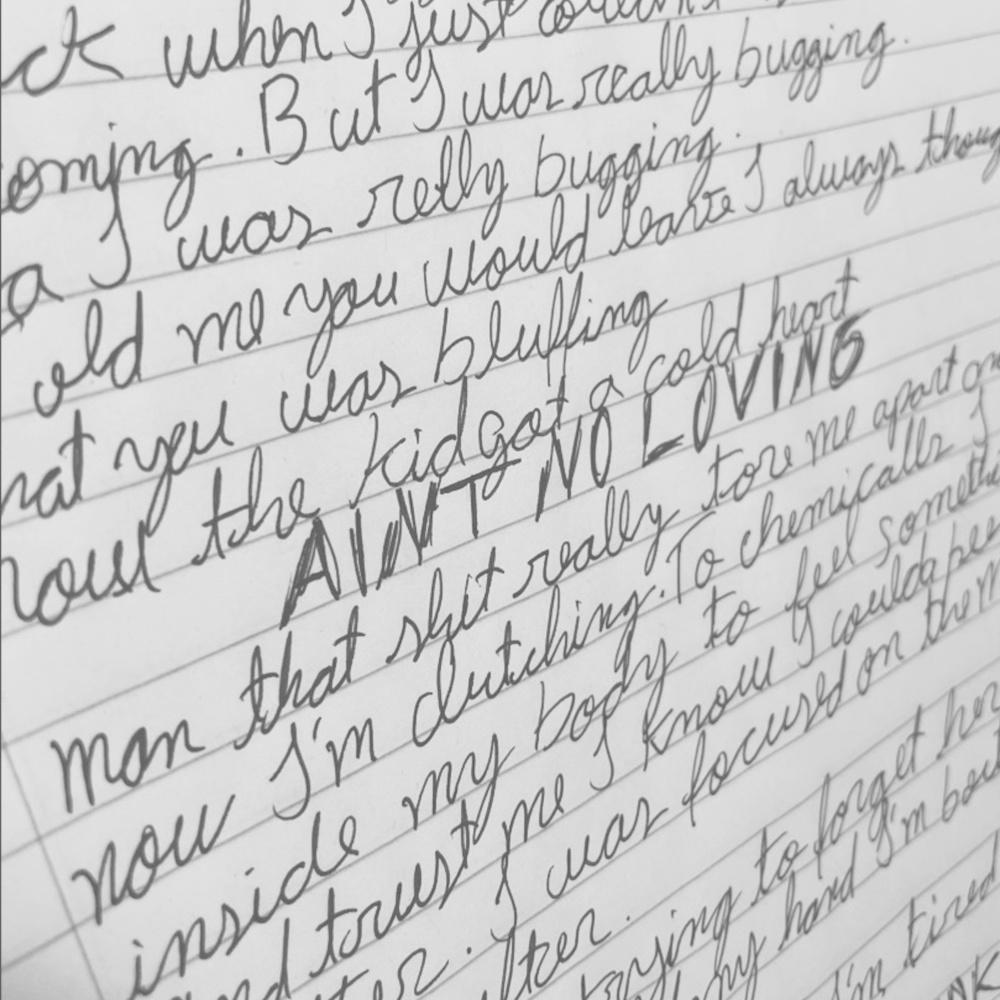 when I just
oming. But I was really bugging.
a I was relly bugging.
old me you would leave I always thoug
hat you was bluffing
now the kid got a cold heart
AINT NO LOVING
man that shit really tore me apart on
now I'm clutching. To chemicalls I
inside my body to feel somethi
and trust me I know I coulda
I was focused on them
trying to forget her
hard I'm
I'm tired